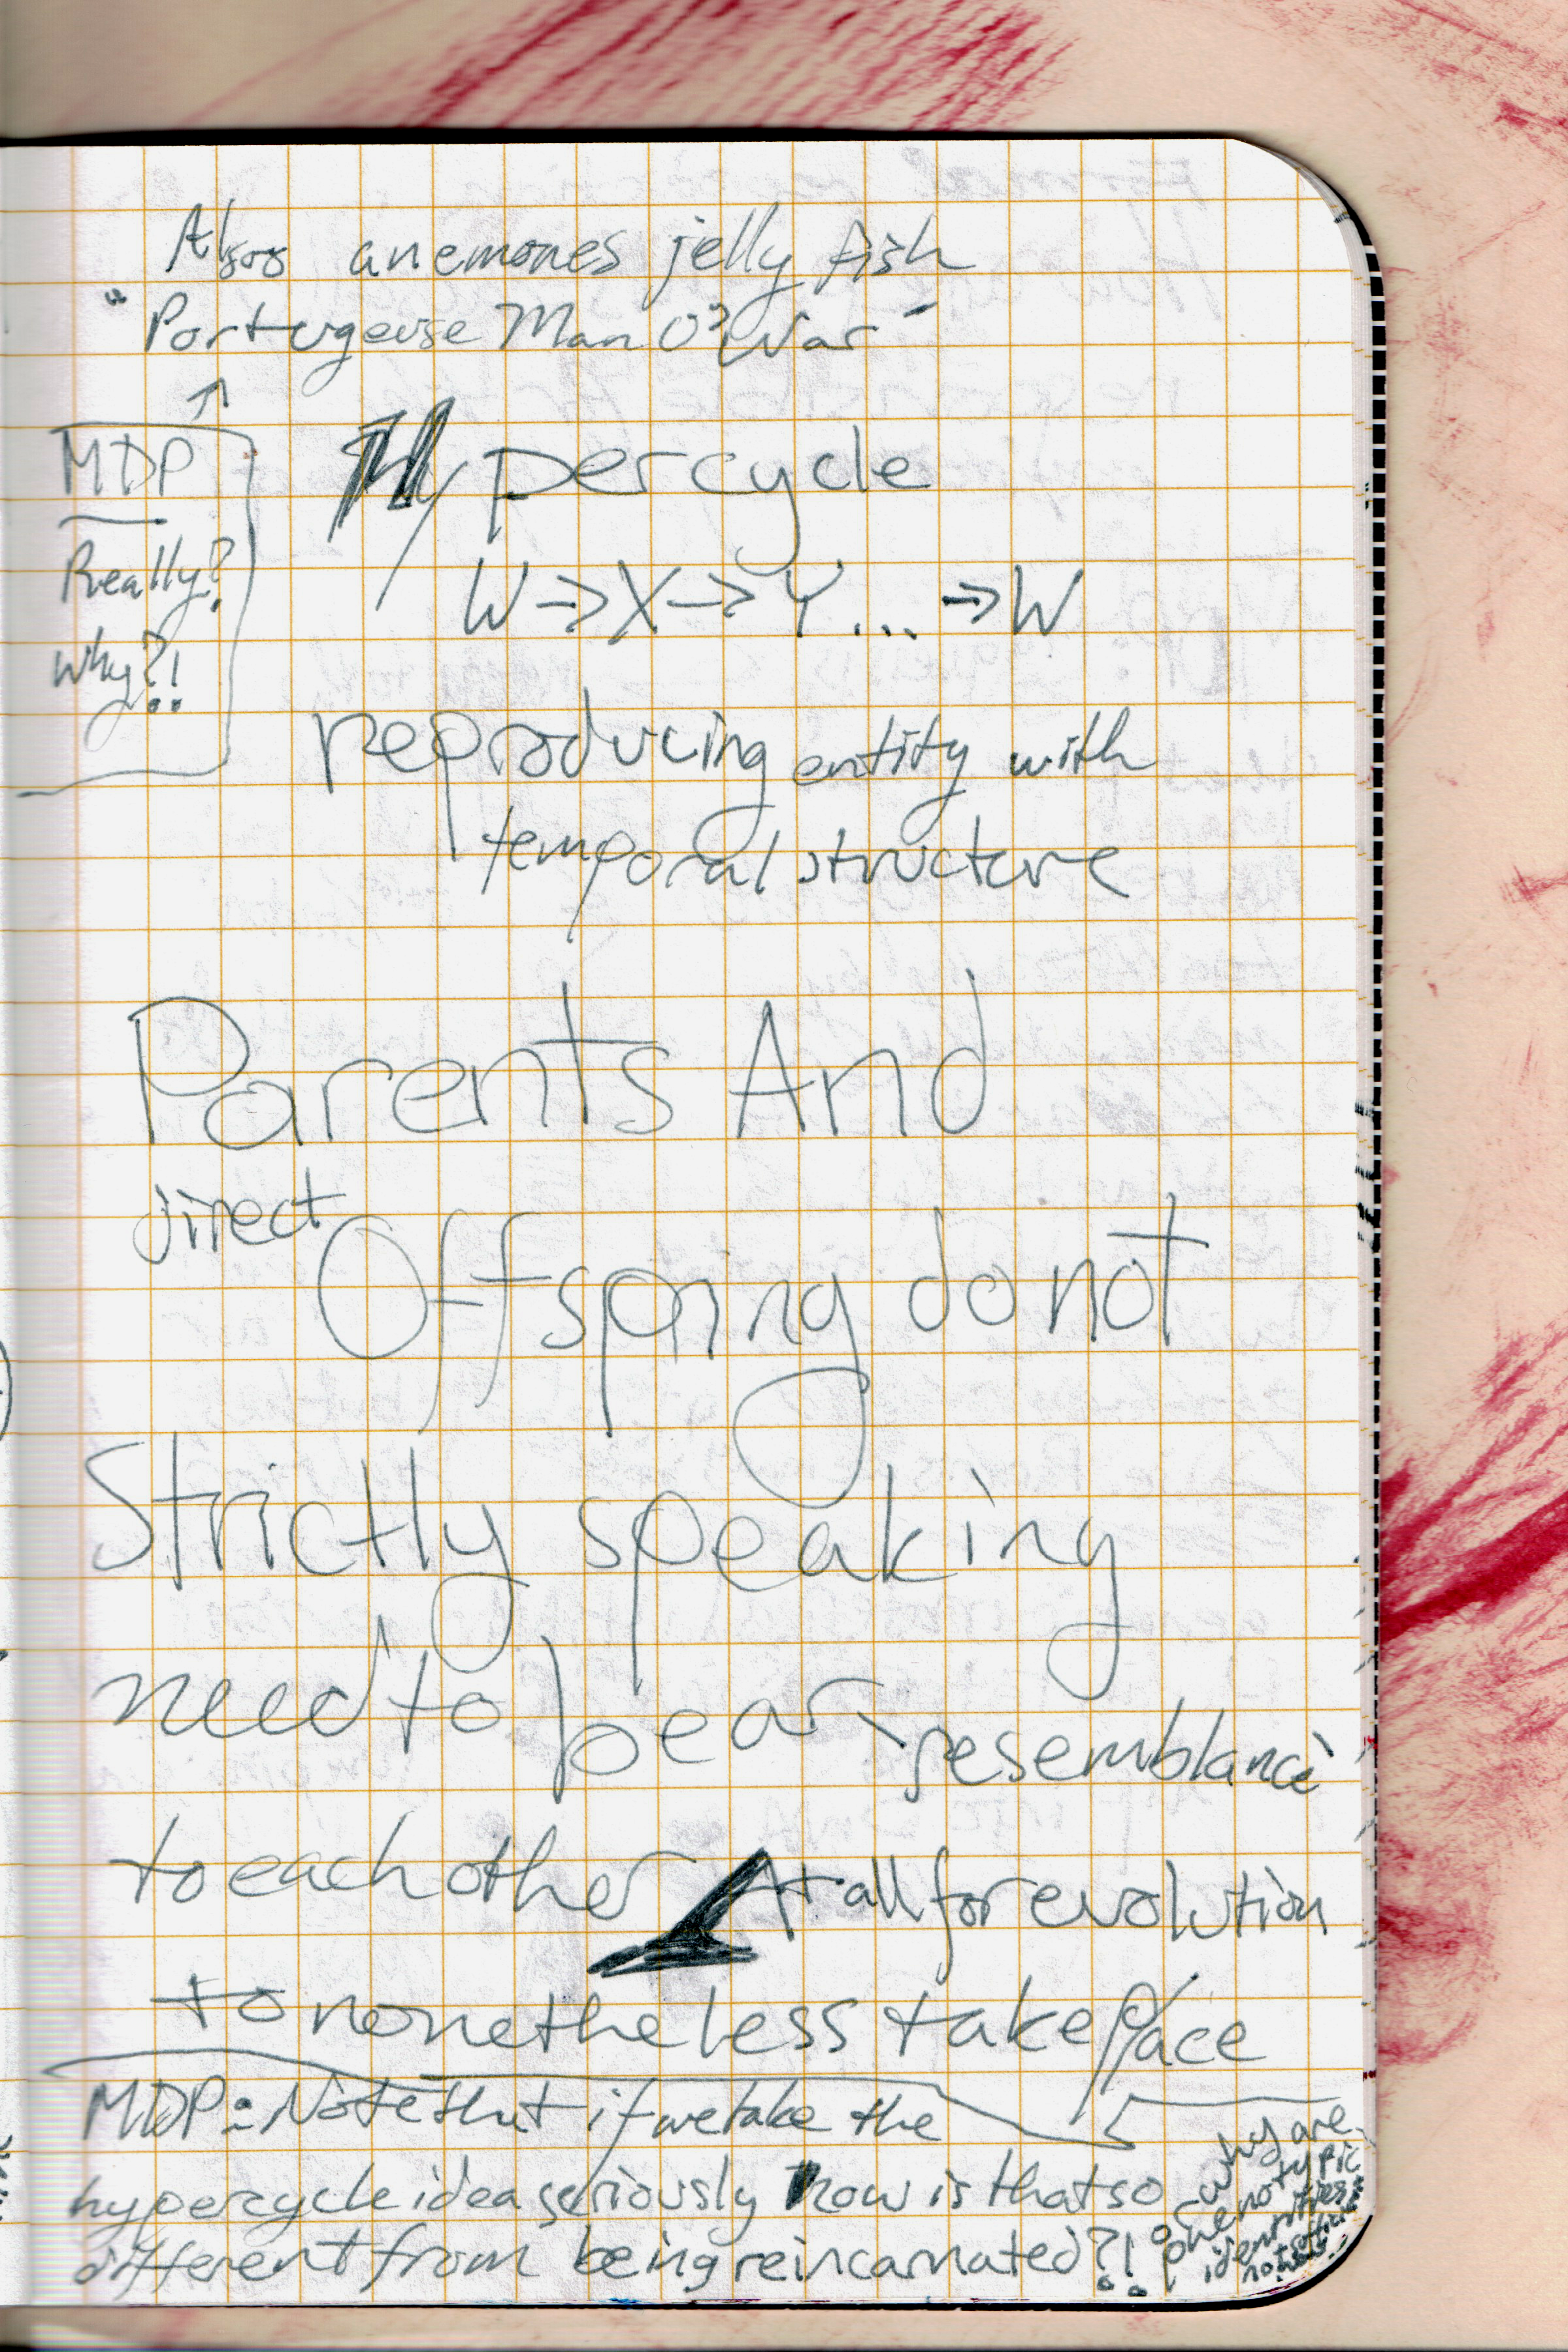 Also anemones jelly fish
"Portugeuse Man O'War"
MDP
Really?
why?!
Hypercycle
W → X → Y ... → W
reproducing entity with
temporal structure
Parents And
direct
Offspring do not
Strictly speaking
need to bear resemblance
to each other At all for evolution
to nonetheless take place
MDP: Note that if we take the
hypercycle idea seriously how is that so
different from being reincarnated?!
or why are
phenotypic
identities
not